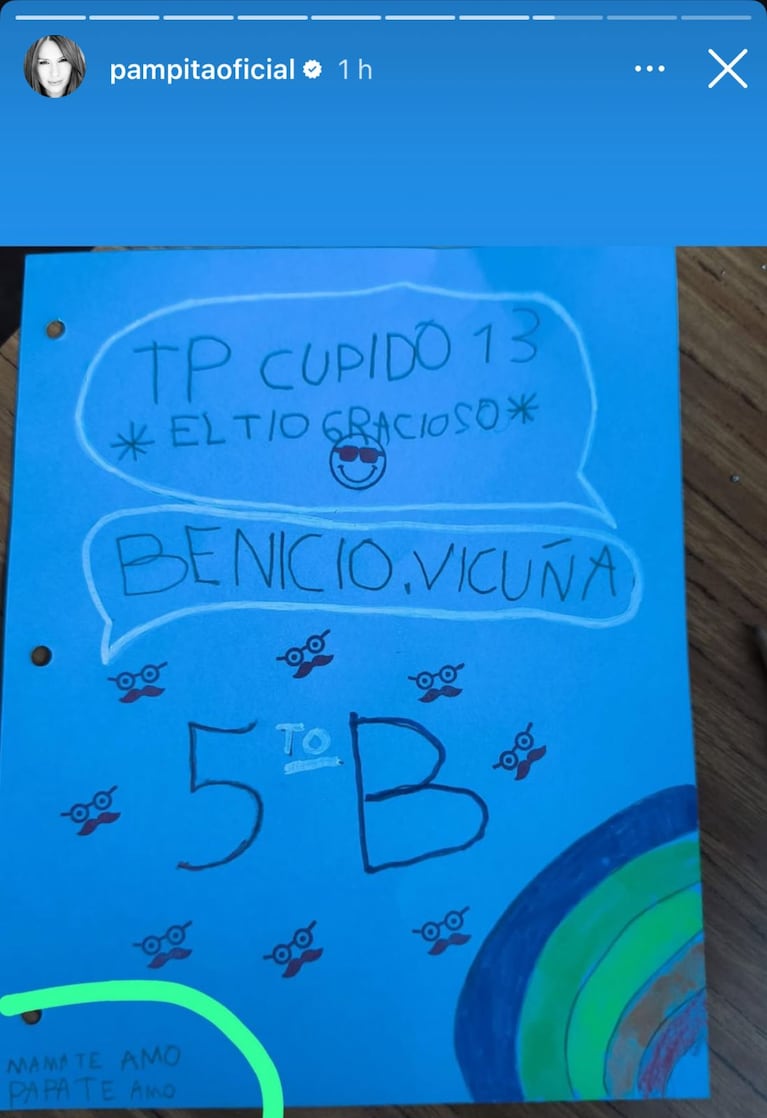 pampitaoficial 1 h
TP CUPIDO 13
* EL TIO GRACIOSO *
BENICIO.VICUÑA
5 TO B
MAMA TE AMO
PAPA TE AMO